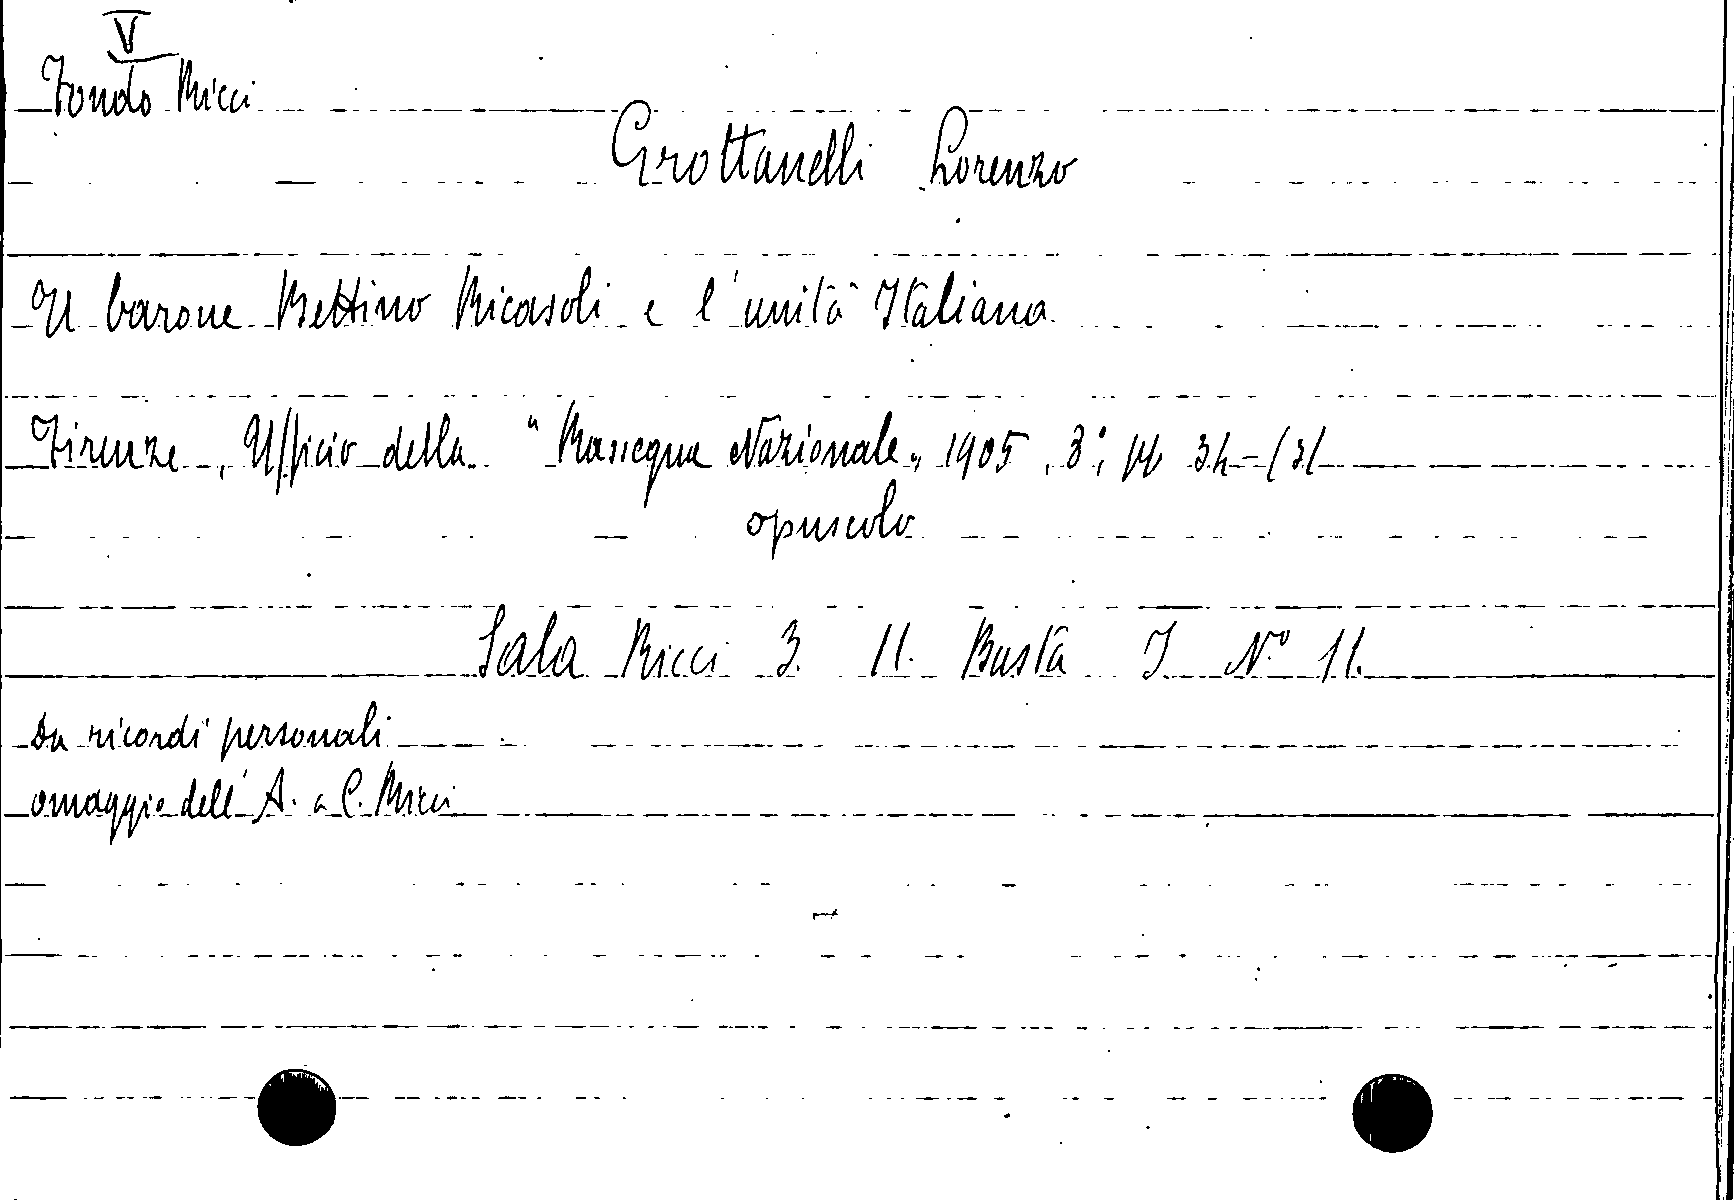 V
Fondo Ricci
Grottanelli Lorenzo
Il barone Bettino Ricasoli e l'unità Italiana
Firenze, Ufficio della "Rassegna Nazionale„ 1905, 8°, pp
opuscolo
Sala Ricci 3. 11. Busta I N.° 11.
Da ricordi personali
omaggio dell'A. a C. Ricci